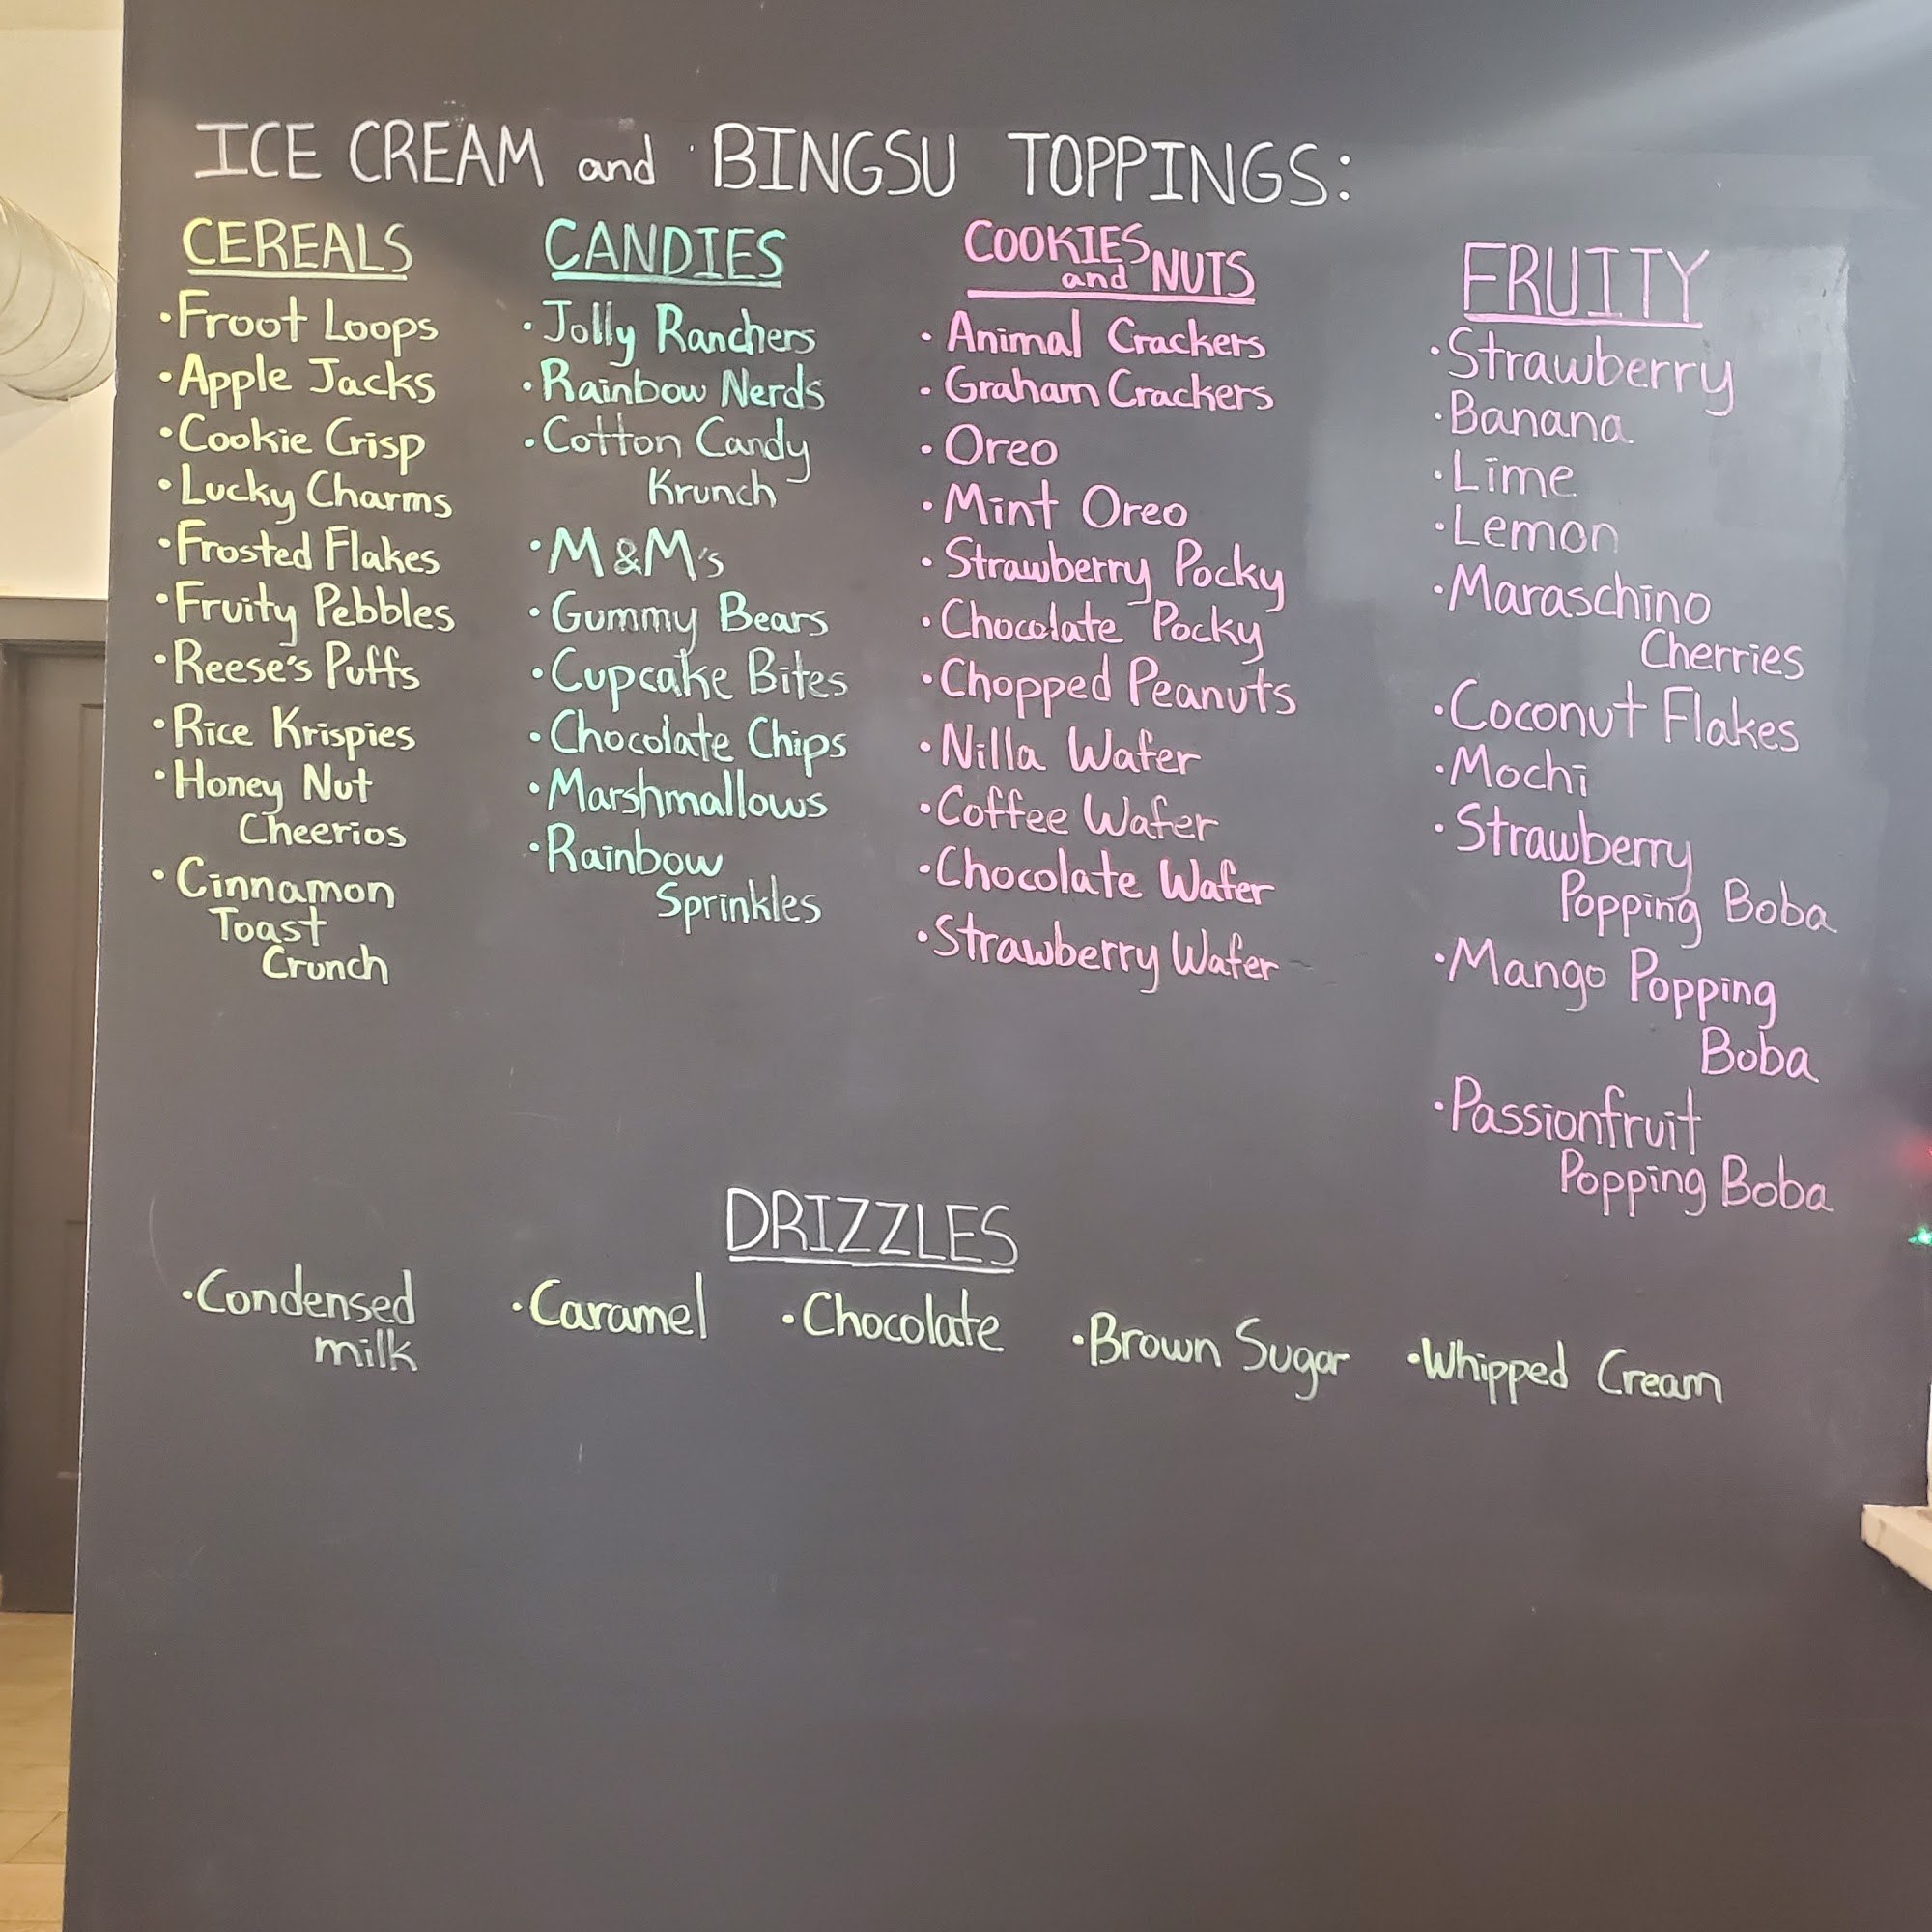 ICE CREAM and BINGSU TOPPINGS:
CEREALS
•Froot Loops
•Apple Jacks
•Cookie Crisp
•Lucky Charms
•Frosted Flakes
•Fruity Pebbles
•Reese's Puffs
•Rice Krispies
•Honey Nut
Cheerios
•Cinnamon
Toast
Crunch
CANDIES
•Jolly Ranchers
•Rainbow Nerds
•Cotton Candy
Krunch
•M&M's
•Gummy Bears
•Cupcake Bites
•Chocolate Chips
•Marshmallows
•Rainbow
Sprinkles
COOKIES
and NUTS
•Animal Crackers
•Graham Crackers
•Oreo
•Mint Oreo
•Strawberry Pocky
•Chocolate Pocky
•Chopped Peanuts
•Nilla Wafer
•Coffee Wafer
•Chocolate Wafer
•Strawberry Wafer
FRUITY
•Strawberry
•Banana
•Lime
•Lemon
•Maraschino
Cherries
•Coconut Flakes
•Mochi
•Strawberry
Popping Boba
•Mango Popping
Boba
•Passionfruit
Popping Boba
DRIZZLES
•Condensed
milk
•Caramel
•Chocolate
•Brown Sugar
•Whipped Cream